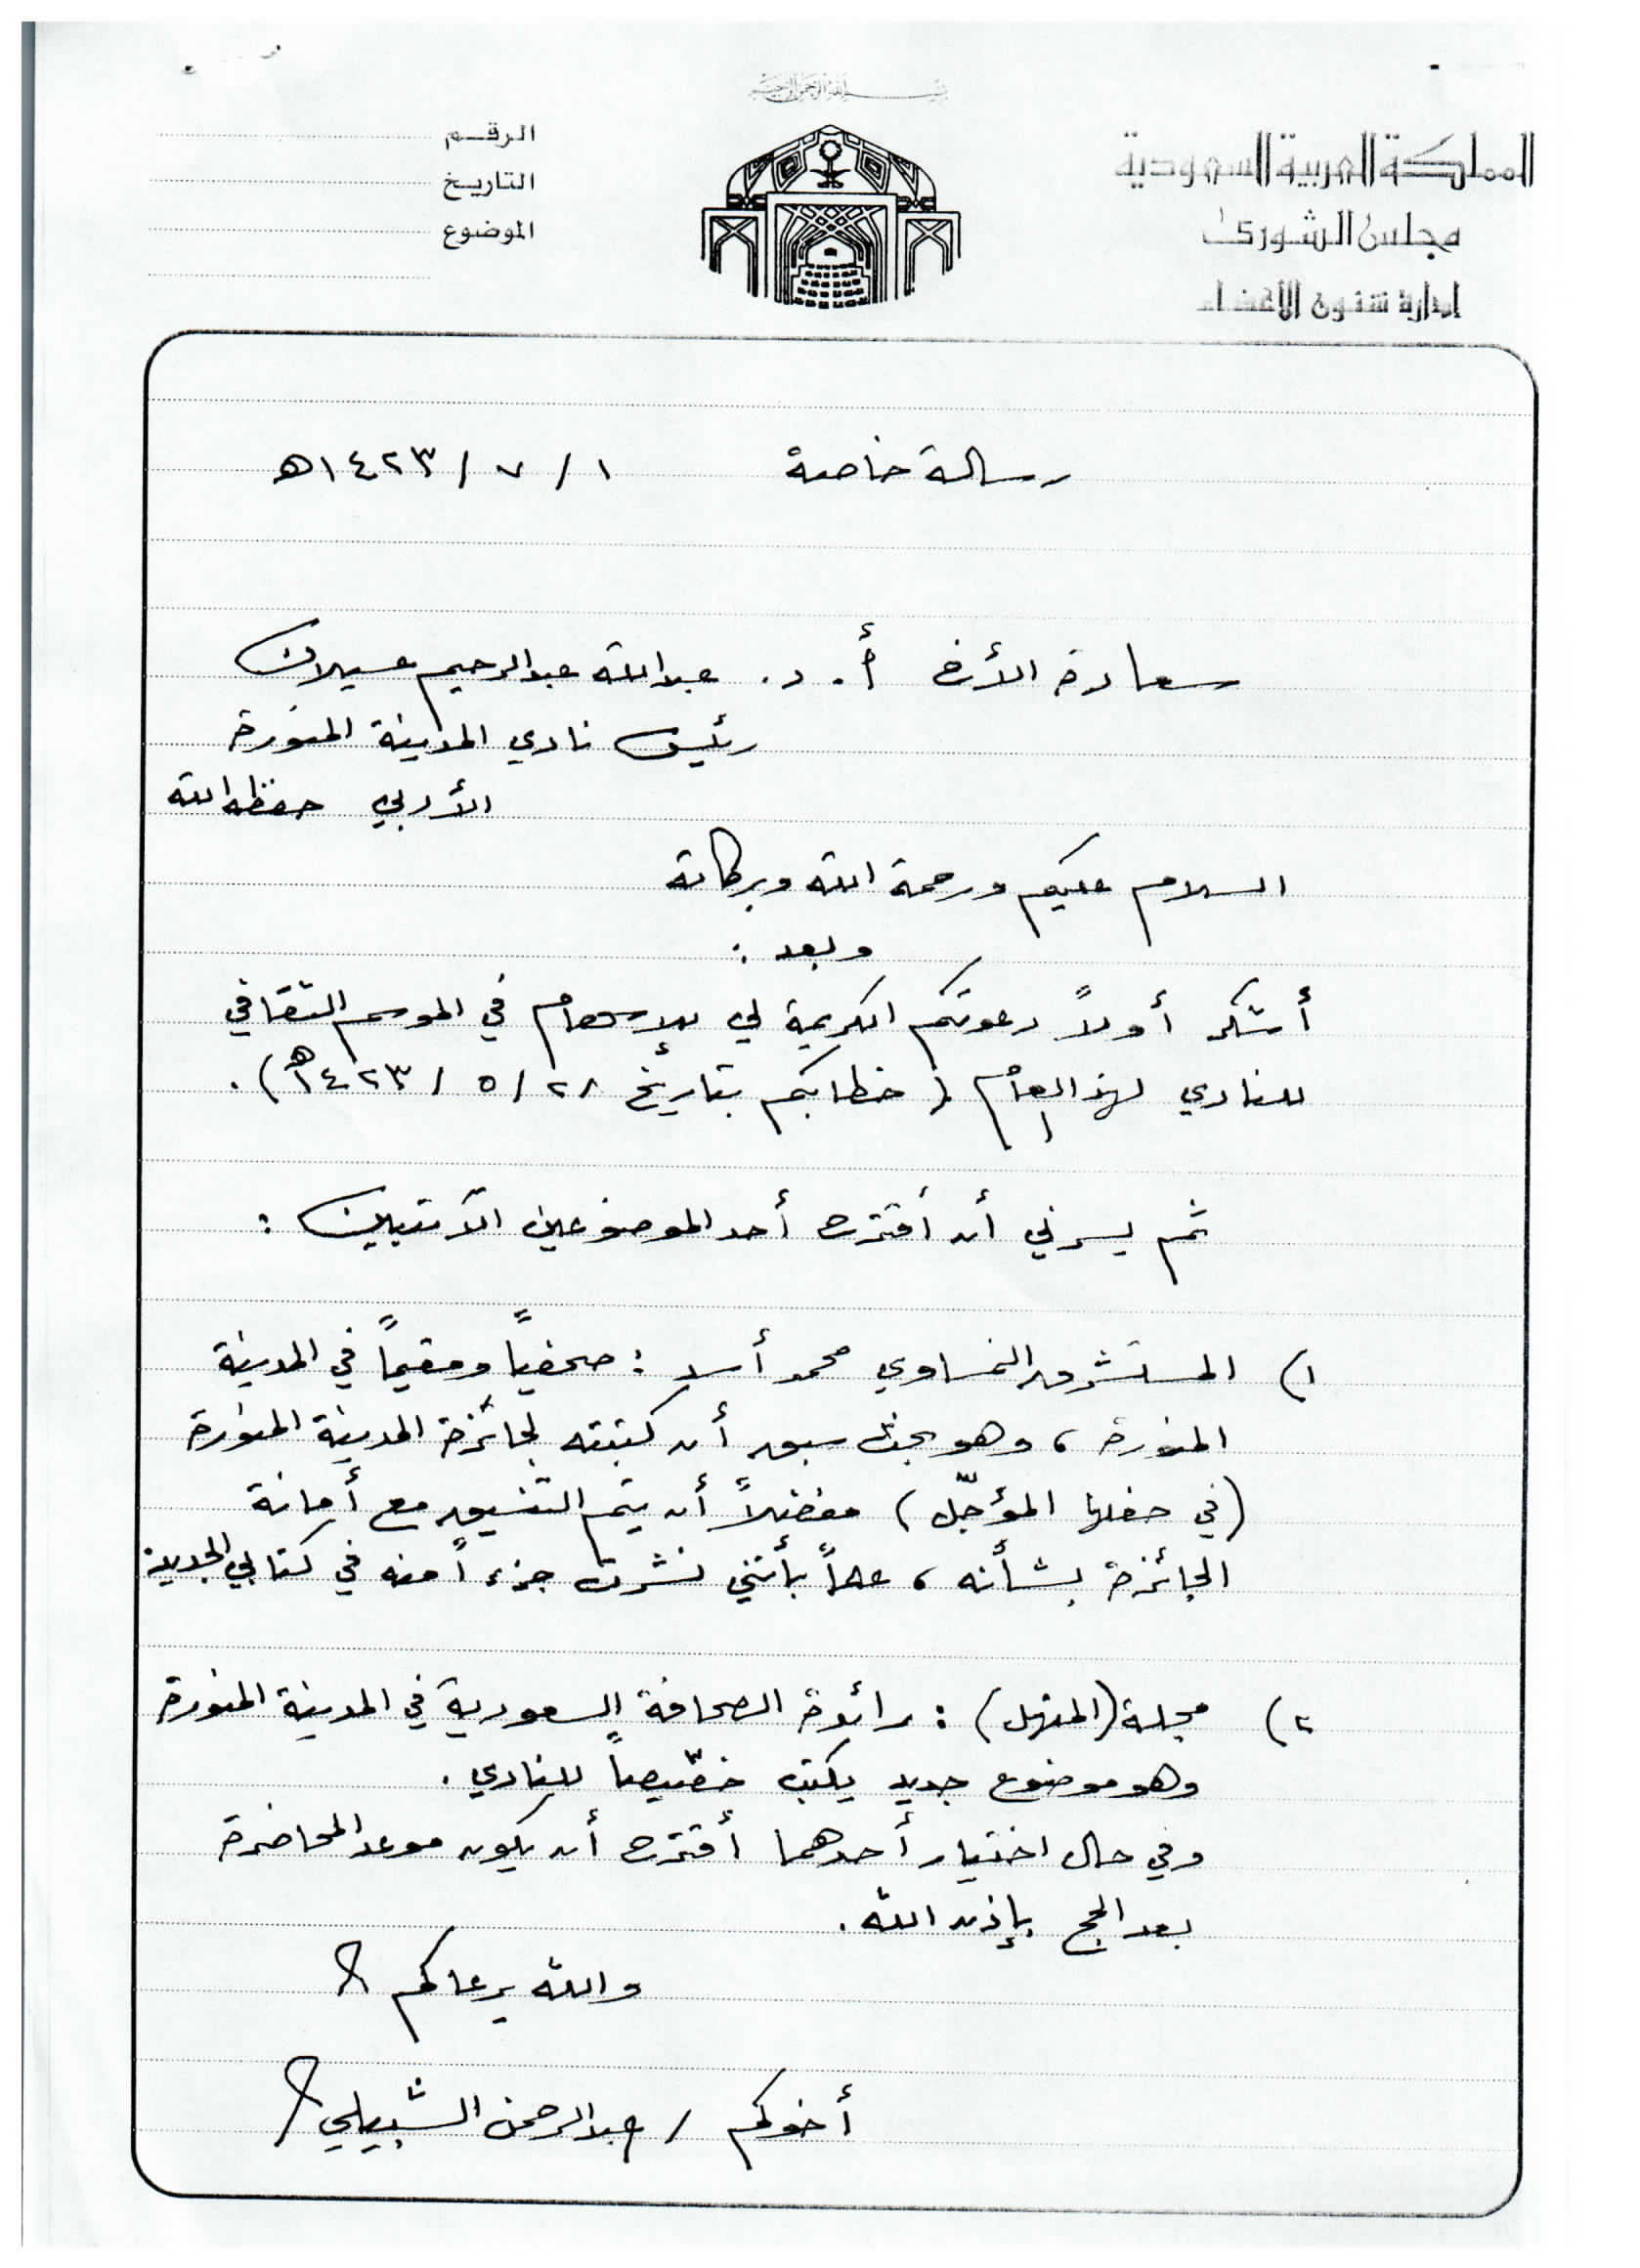 بسم الله الرحمن الرحيم
المملكة العربية السعودية
مجلس الشورى
إدارة شئون الأعضاء
الرقم
التاريخ
الموضوع
رسالة خاصة ١ / ٧ / ١٤٢٣هـ
سعادة الأخ أ. د. عبدالله عبدالرحيم عسيلان
رئيس نادي المدينة المنورة
الأدبي حفظه الله
السلام عليكم ورحمة الله وبركاته
وبعد :
أشكر أولاً دعوتكم الكريمة لي للإسهام في الموسم الثقافي
للنادي لهذا العام ( خطابكم بتاريخ ٢٨ / ٥ / ١٤٢٣هـ ) .
ثم يسرني أن أقترح أحد الموضوعين الآتيين :
١) المستشرق النمساوي محمد أسد : صحفياً ومقيماً في المدينة
المنورة ، وهو بحث سبق أن كتبته لجائزة المدينة المنورة
(في حفلها المؤجّل) مفضلاً أن يتم التنسيق مع أمانة
الجائزة بشأنه ، علماً بأنني نشرت جزءاً منه في كتابي الجديد
٢) مجلة (المنهل) : رائدة الصحافة السعودية في المدينة المنورة
وهو موضوع جديد يكتب خصّيصاً للنادي .
وفي حال اختيار أحدهما أقترح أن يكون موعد المحاضرة
بعد الحج بإذن الله .
والله يرعاكم
أخوكم / عبدالرحمن الشبيلي